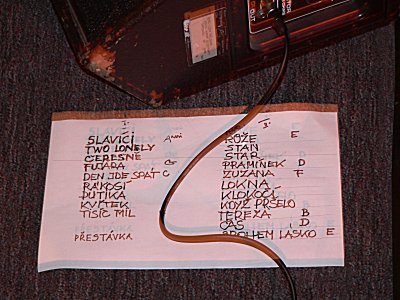 I
SLAVÍCI A moll
TWO LONELY
ČEREŠNĚ
FUJARA G
DEN JDE SPÁT C
RÁKOSÍ
PUTIKA
KVÍTEK
TISÍC MIL
PŘESTÁVKA
RŮŽE E
STAN
STAR
PRAMÍNEK D
ZUZANA F
LOKNA
KLOKOČÍ
KDYŽ PRŠELO
TEREZA B
ČAS D
SBOHEM LÁSKO E
OUT